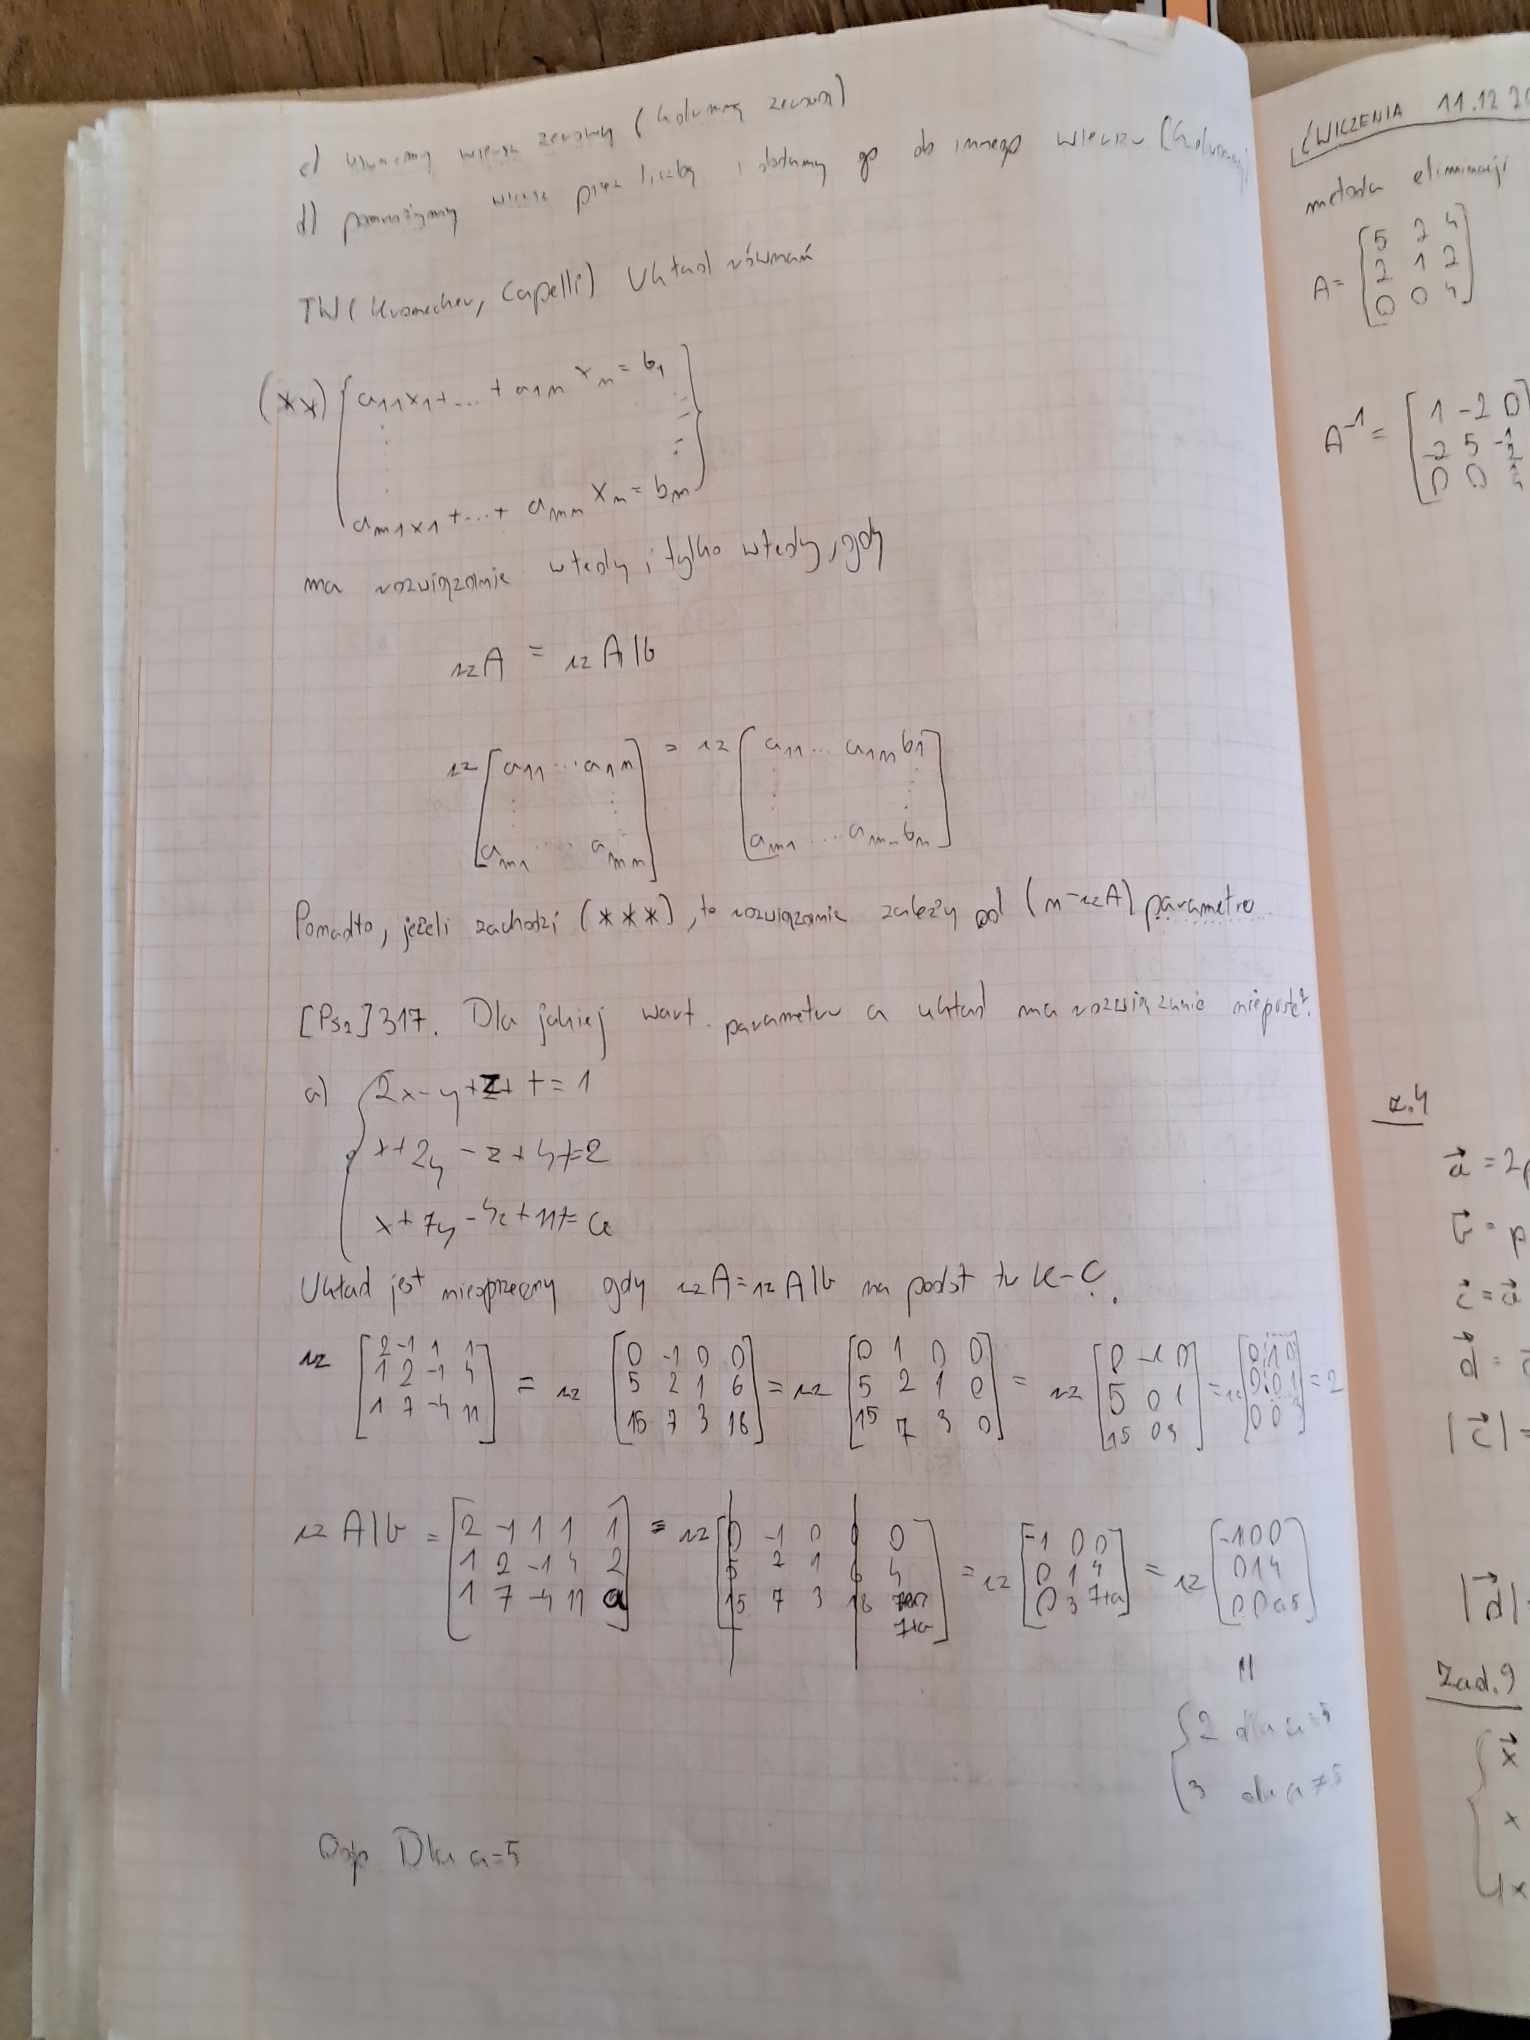 c) usuniemy wiersz zerowy (kolumnę zerową)
d) pomnożymy wiersz przez liczbę i dodamy go do innego wiersza (kolumny)
TW (Kronecker, Capelli) Układ równań
(**) { a11x1+...+ a1n xn = b1
am1x1 +...+ amn xn = bm
ma rozwiązanie wtedy i tylko wtedy, gdy
rz A = rz A|b
rz [ a11 ... a1n ] = rz [ a11 ... a1n b1 ]
[ am1 ... amn ] [ am1 ... amn bm ]
Ponadto, jeżeli zachodzi (***), to rozwiązanie zależy od (n-rzA) parametrów
[Ps2] 317. Dla jakiej wart. parametru a układ ma rozwiązanie
a) { 2x-y+z+t=1
x+2y-z+4t=2
x+7y-4z+11t=a
Układ jest niesprzeczny gdy rzA=rzA|b na podst tw K-C.
rz [ 2 -1 1 1 ] = rz [ 0 -1 0 0 ] = rz [ 0 1 0 0 ] = rz [ 0 -1 0 ] = rz [ 0 1 0 ] = 2
[ 1 2 -1 4 ] [ 5 2 1 6 ] [ 5 2 1 0 ] [ 5 0 1 ] [ 0 0 1 ]
[ 1 7 -4 11 ] [ 15 7 3 18 ] [ 15 7 3 0 ] [ 15 0 3 ] [ 0 0 ]
rz A|b = [ 2 -1 1 1 1 ] = rz [ 0 -1 0 0 0 ] = rz [ -1 0 0 ] = rz [ -1 0 0 ]
[ 1 2 -1 4 2 ] [ 5 2 1 6 4 ] [ 0 1 4 ] [ 0 1 4 ]
[ 1 7 -4 11 a ] [ 15 7 3 18 7+a ] [ 0 3 7+a ] [ 0 0 a5 ]
{ 2 dla a=5
3 dla a≠5
Odp Dla a=5
ĆWICZENIA 11.12 20
metoda eliminacji
A= [ 5 2 4 ]
[ 2 1 2 ]
[ 0 0 4 ]
A-1 = [ 1 -2 0
-2 5
0 0
z.4
a = 2p
b = p
c = a
d =
|c| =
|d|
Zad.9
x
x
4x